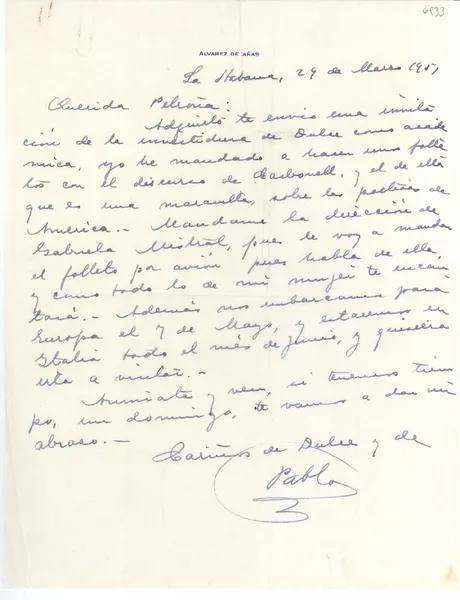 6933
ALVAREZ DE CAÑAS
La Habana, 29 de Marzo 1951
Querida Pelroña:
Adjunto te envio una invita
ción de la investidura de Dulce como acadé
mica, yo he mandado a hacer unos folle
tos con el discurso de Carbonell, y el de ella
que es una maravilla, sobre las poetisas de
America.- Mandame la dirección de
Gabriela Mistral, pues le voy a mandar
el folleto por avión pues habla de ella,
y como todo lo de mi mujer te encan
tará.- Además nos embarcamos para
Europa el 7 de Mayo, y estaremos en
Italia todo el mes de Junio, y quisiera
irla a visitar.-
Anímate y ven, si tenemos tiem
po, un domingo, te vamos a dar un
abraso.-
Cariños de Dulce y de
Pablo